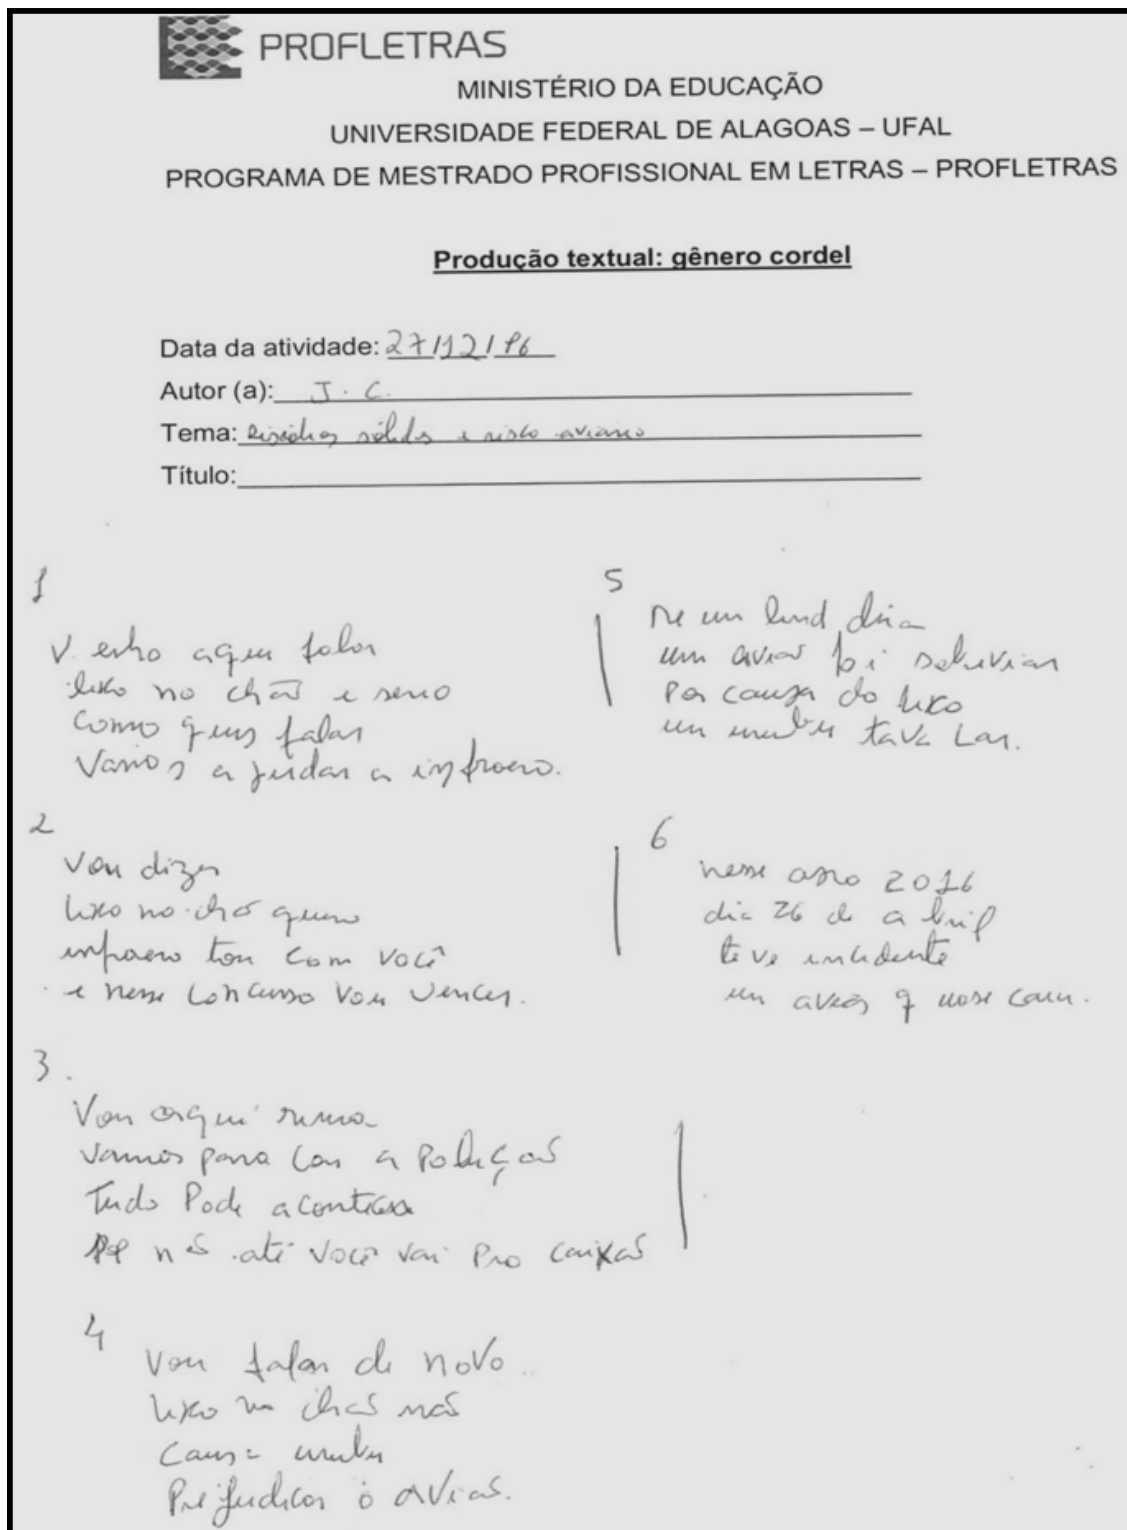 PROFLETRAS
MINISTÉRIO DA EDUCAÇÃO
UNIVERSIDADE FEDERAL DE ALAGOAS – UFAL
PROGRAMA DE MESTRADO PROFISSIONAL EM LETRAS – PROFLETRAS
Produção textual: gênero cordel
Data da atividade: 27/12/16
Autor (a): J. C.
Tema: sólidos e risco aviario
Título:
1
V. enho aqui falar
lixo no chão e serio
como quis falar
Vamos a judar a infraero.
2
Vou dizer
lixo no chão
infraero tou com você
e nesse concurso vou vencer.
3.
Vou aqui rima
vamos para con a polução
Tudo Pode acontese
nãs até você vai pro caixão
4
Vou falar de novo
lixo no chão não
Causa urubu
Prejudicar o avião.
5
Ne un lind dia
um avião foi
Por causa do lixo
un urubu tava Lar.
6
nesse ano 2016
dia 26 de a bril
te ve incidente
un avião q uase caiu.